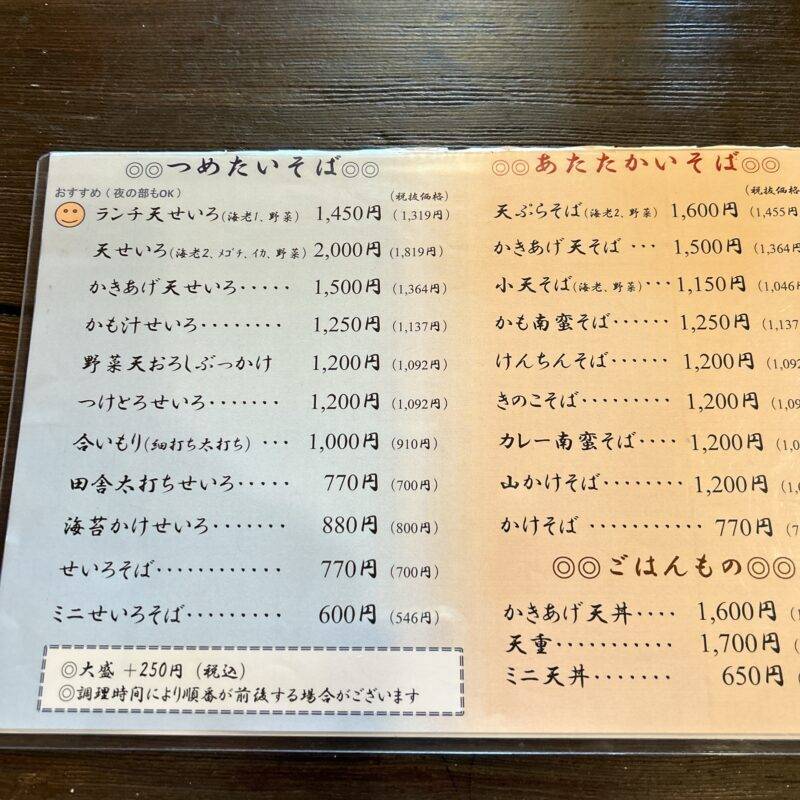 ◎◎つめたいそば◎◎
おすすめ（夜の部もOK）
（税抜価格）
ランチ天せいろ（海老1、野菜） 1,450円（1,319円）
天せいろ（海老2、メゴチ、イカ、野菜） 2,000円（1,819円）
かきあげ天せいろ‥‥‥ 1,500円（1,364円）
かも汁せいろ‥‥‥‥ 1,250円（1,137円）
野菜天おろしぶっかけ 1,200円（1,092円）
つけとろせいろ‥‥‥‥ 1,200円（1,092円）
合いもり（細打ち太打ち）‥‥ 1,000円（910円）
田舎太打ちせいろ‥‥‥ 770円（700円）
海苔かけせいろ‥‥‥‥ 880円（800円）
せいろそば‥‥‥‥‥‥ 770円（700円）
ミニせいろそば‥‥‥‥‥ 600円（546円）
◎大盛 ＋250円（税込）
◎調理時間により順番が前後する場合がございます
◎◎あたたかいそば◎◎
（税抜価格）
天ぷらそば（海老2、野菜） 1,600円（1,455円
かきあげ天そば ‥‥ 1,500円（1,364円
小天そば（海老、野菜）‥‥ 1,150円（1,046円
かも南蛮そば‥‥‥ 1,250円（1,137
けんちんそば‥‥‥ 1,200円（1,092
きのこそば‥‥‥‥‥ 1,200円（1,09
カレー南蛮そば‥‥ 1,200円（1,0
山かけそば‥‥‥‥ 1,200円（1,
かけそば ‥‥‥‥‥‥ 770円（7
◎◎ごはんもの◎◎
かきあげ天丼‥‥ 1,600円（
天重‥‥‥‥‥‥ 1,700円（
ミニ天丼‥‥‥‥ 650円（